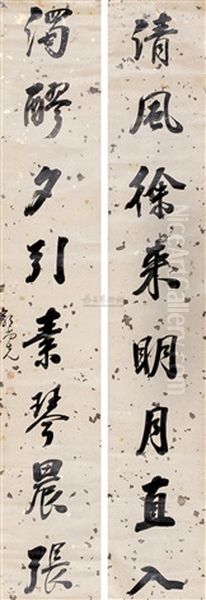 清風徐來明月直入
濁醪夕引素琴晨張